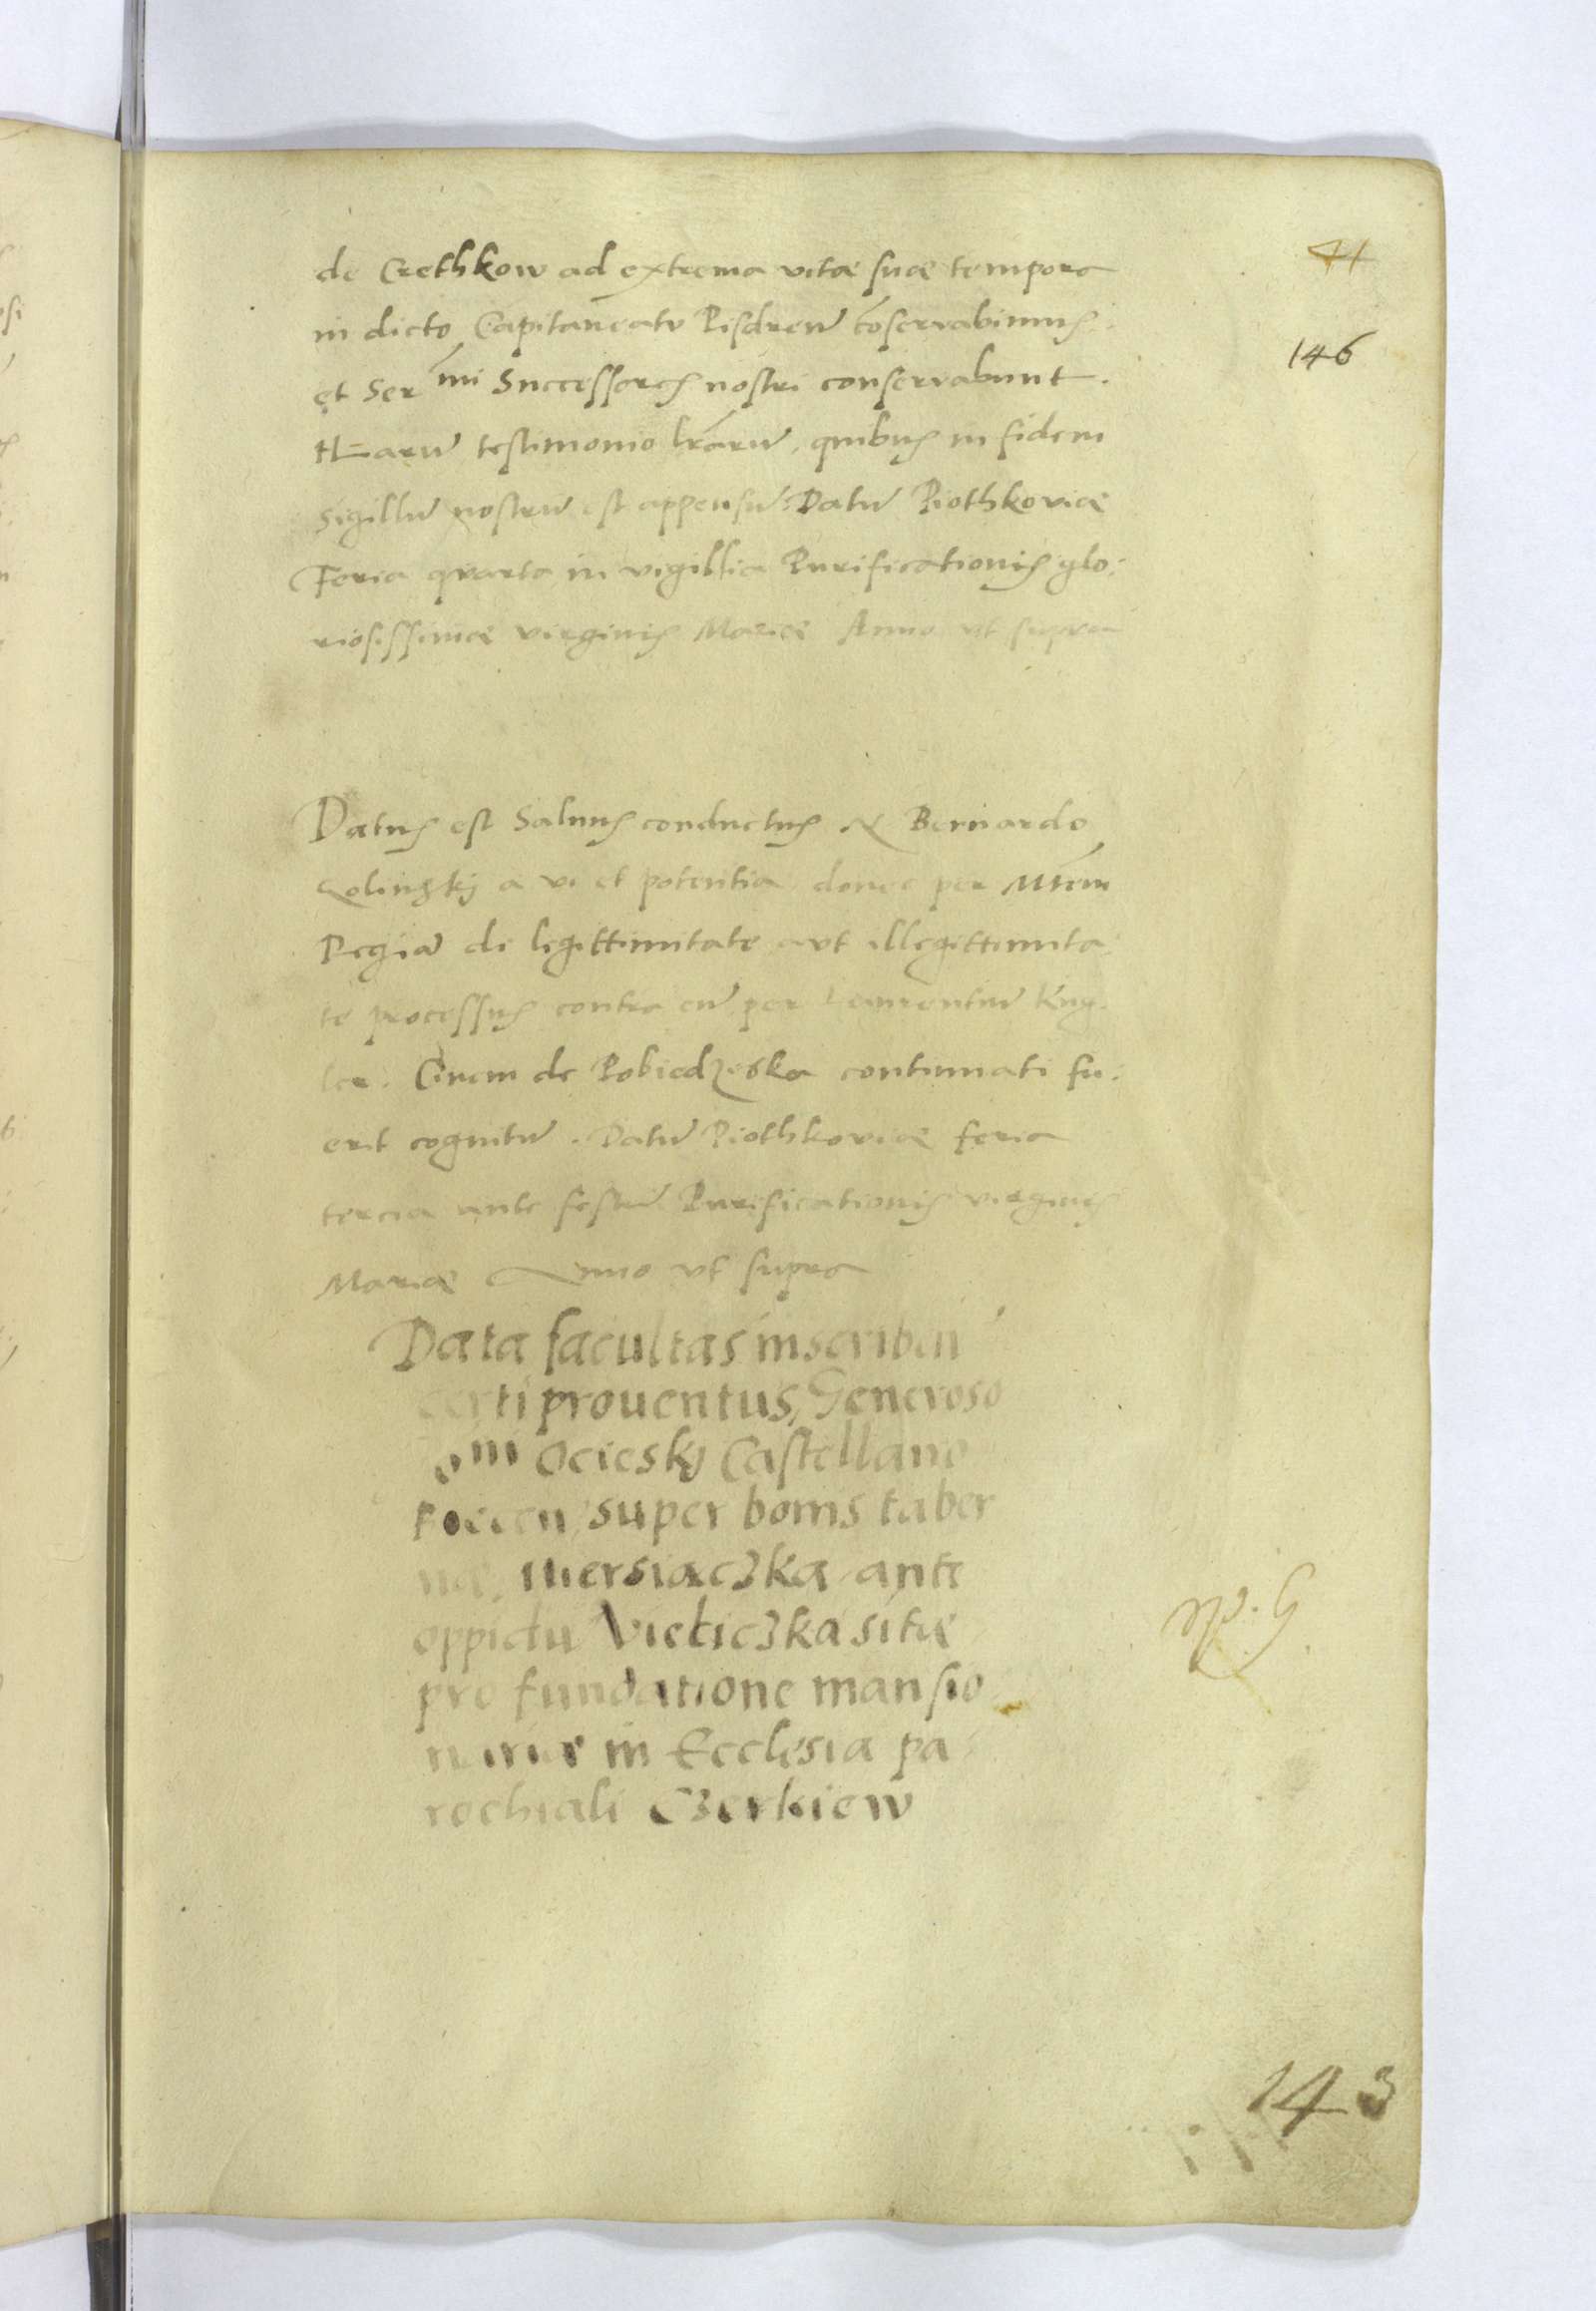 41
de Crethkow ad extrema vitæ suæ tempora
in dicto Capitaneatu Pisdreñ cõservabimus
146
et Ser mi Successores nostri conservabunt.
Harũ testimonio lrãrũ, quibus in fidem
Sigillũ nostrũ est appensũ. Datũ Piothkoviæ
Feria quarta in vigillia Purificationis glo:
riosissimæ virginis Mariæ Anno ut supra
Datus est Salvus conductus N Bernardo
a vi et potentia donec per Mtẽm
Regiã de legittimitate aut illegittimita
te processus contra eũ per Laurentiũ
Civem de Pobiedziska continuati fu:
erit cognitũ. Datũ Piothkoviæ feria
tercia ante festũ Purificationis virginis
Mariæ Anno ut supra
Data facultas inscribẽn
certi prouentus, Generoso
Ocieskj Castellano
super bonis taber
næ, mersiaczka ante
oppidũ Vieliczka sitæ
pro fundatione mansio
nariæ in Ecclesia pa
rochiali Czerkiew
143